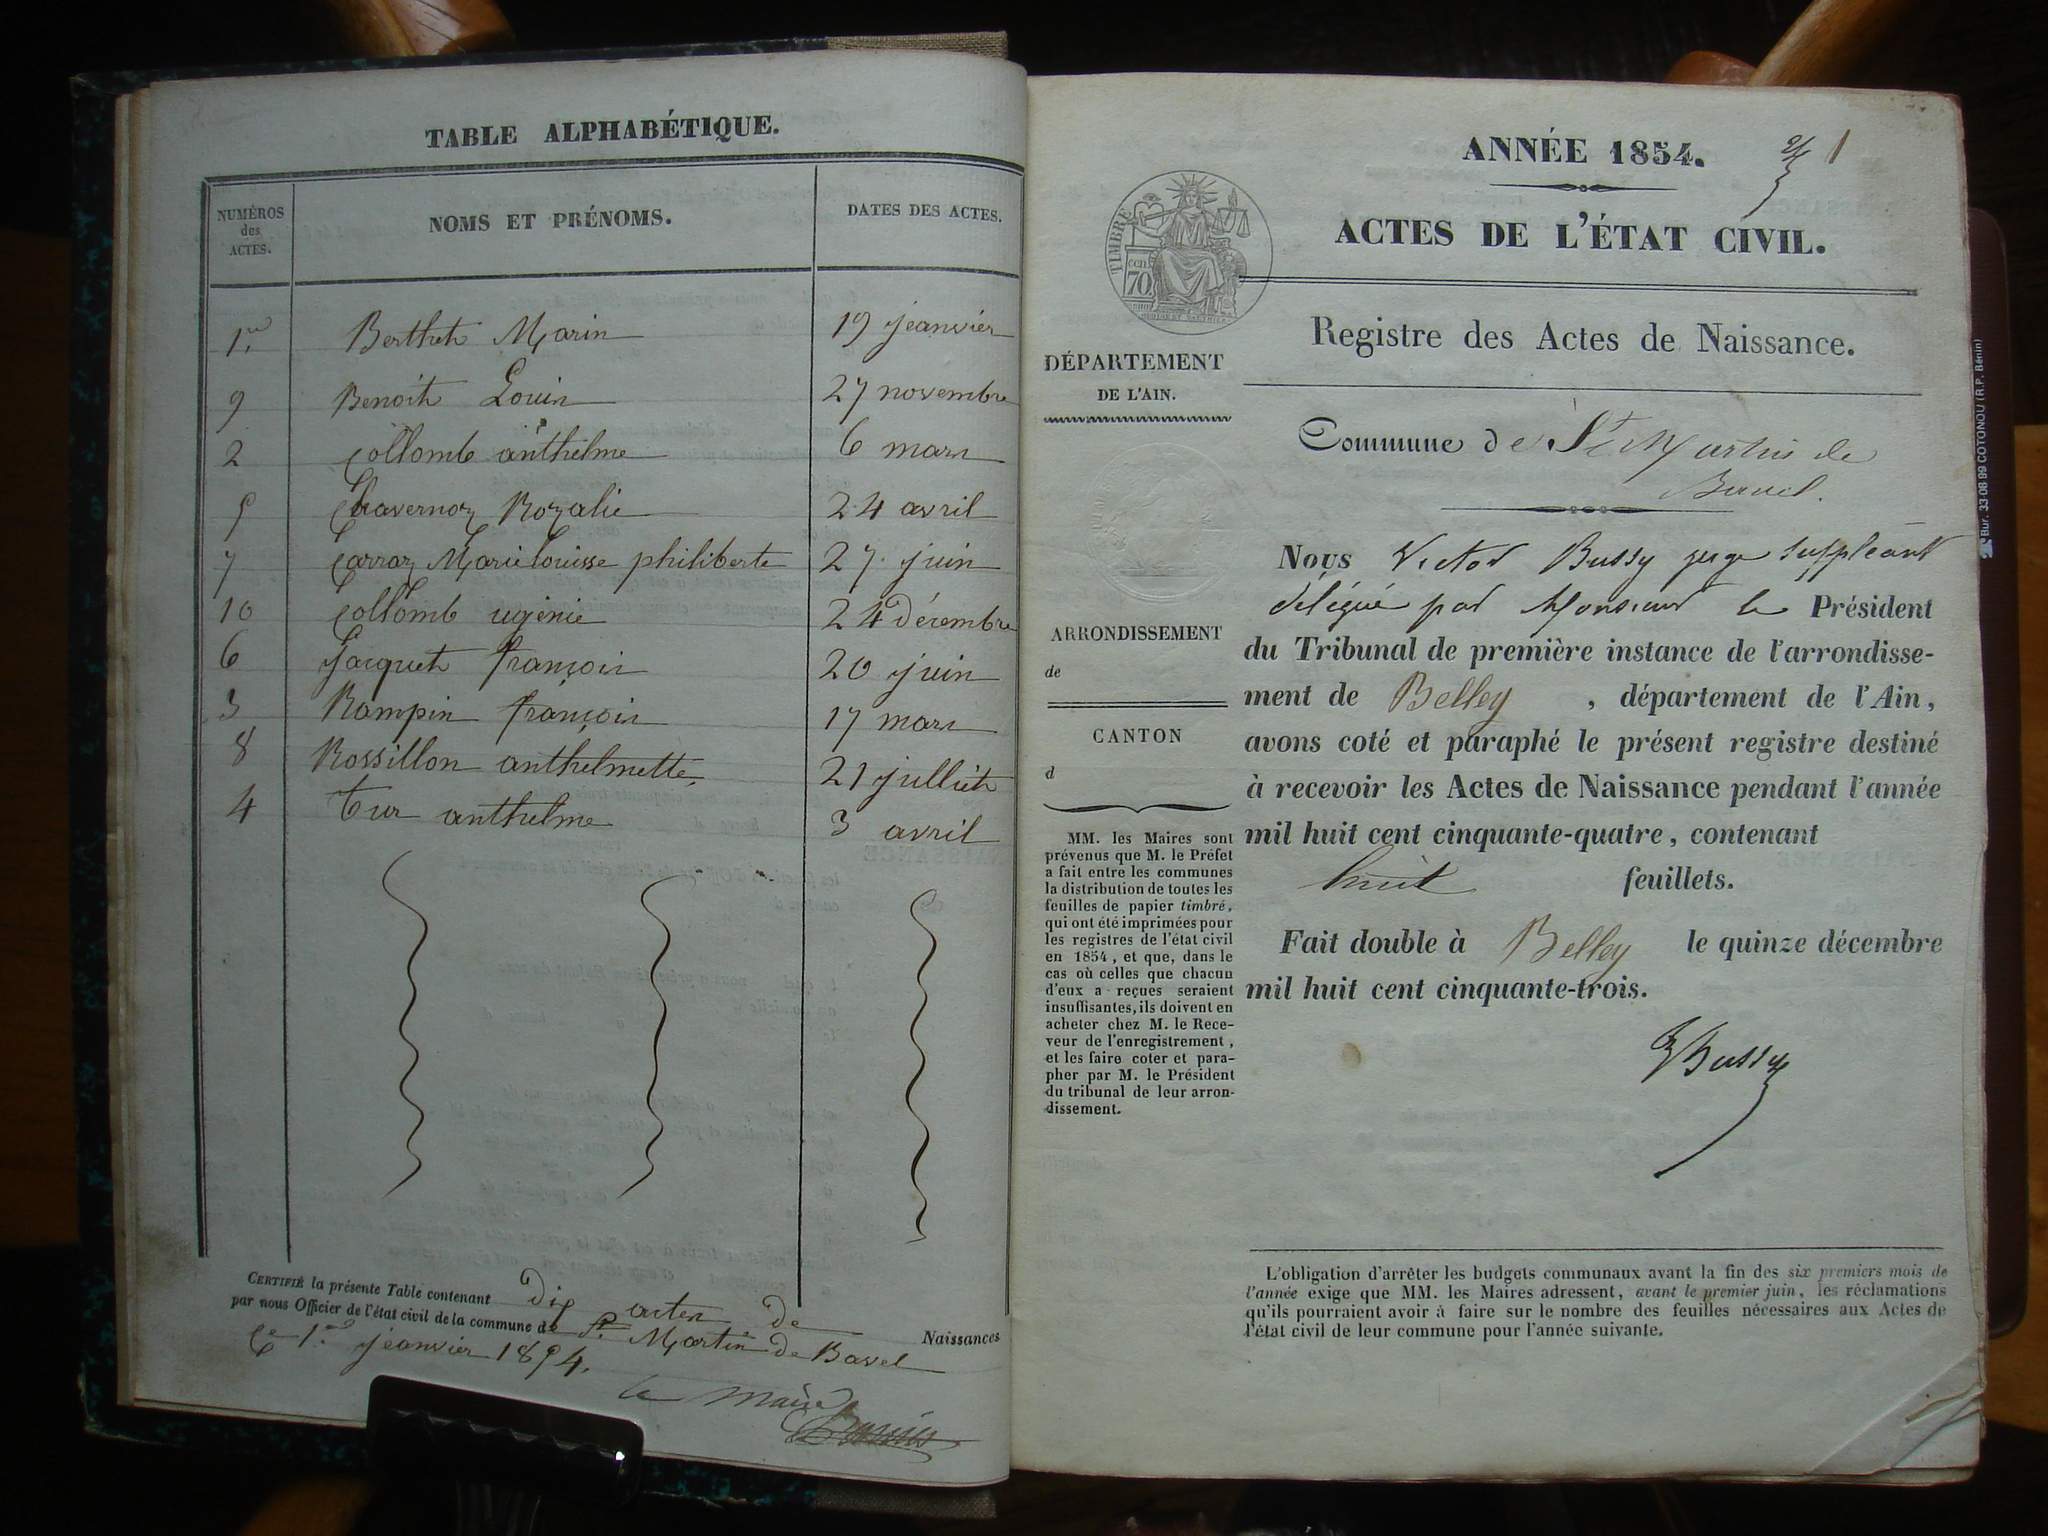 TABLE ALPHABÉTIQUE.
NUMÉROS des ACTES. NOMS ET PRÉNOMS. DATES DES ACTES.
1.er Berthet Marin 19 jeanvier
9 Benoit Louin 27 novembre
2 Collomb anthelme 6 mars
5 Chavernoz Rozalie 24 avril
7 Carraz Marie louisse philiberte 27 juin
10 Collomb ugénie 24 décembre
6 Jacquet françois 20 juin
3 Rampin françois 17 mars
8 Rossillon anthelmette 21 julliet
4 Tur anthelme 3 avril
CERTIFIÉ la présente Table contenant dix actes de Naissances
par nous Officier de l'état civil de la commune de St. Martin de Bavel
Le 1.er jeanvier 1854.
le Maire
ANNÉE 1854.
1
ACTES DE L'ÉTAT CIVIL.
TIMBRE
cen
70
Registre des Actes de Naissance.
DÉPARTEMENT
DE L'AIN.
Commune de St Martin de
Bavel.
ARRONDISSEMENT
de
CANTON
d
MM. les Maires sont
prévenus que M. le Préfet
a fait entre les communes
la distribution de toutes les
feuilles de papier timbré,
qui ont été imprimées pour
les registres de l'état civil
en 1854, et que, dans le
cas où celles que chacun
d'eux a reçues seraient
insuffisantes, ils doivent en
acheter chez M. le Rece-
veur de l'enregistrement,
et les faire coter et para-
pher par M. le Président
du tribunal de leur arron-
dissement.
Nous Victor Bussy juge suppléant
délégué par Monsieur le Président
du Tribunal de première instance de l'arrondisse-
ment de Belley, département de l'Ain,
avons coté et paraphé le présent registre destiné
à recevoir les Actes de Naissance pendant l'année
mil huit cent cinquante-quatre, contenant
huit feuillets.
Fait double à Belley le quinze décembre
mil huit cent cinquante-trois.
VBussy
L'obligation d'arrêter les budgets communaux avant la fin des six premiers mois de
l'année exige que MM. les Maires adressent, avant le premier juin, les réclamations
qu'ils pourraient avoir à faire sur le nombre des feuilles nécessaires aux Actes de
l'état civil de leur commune pour l'année suivante.
Bur. 33 08 99 COTONOU (R.P. Bénin)